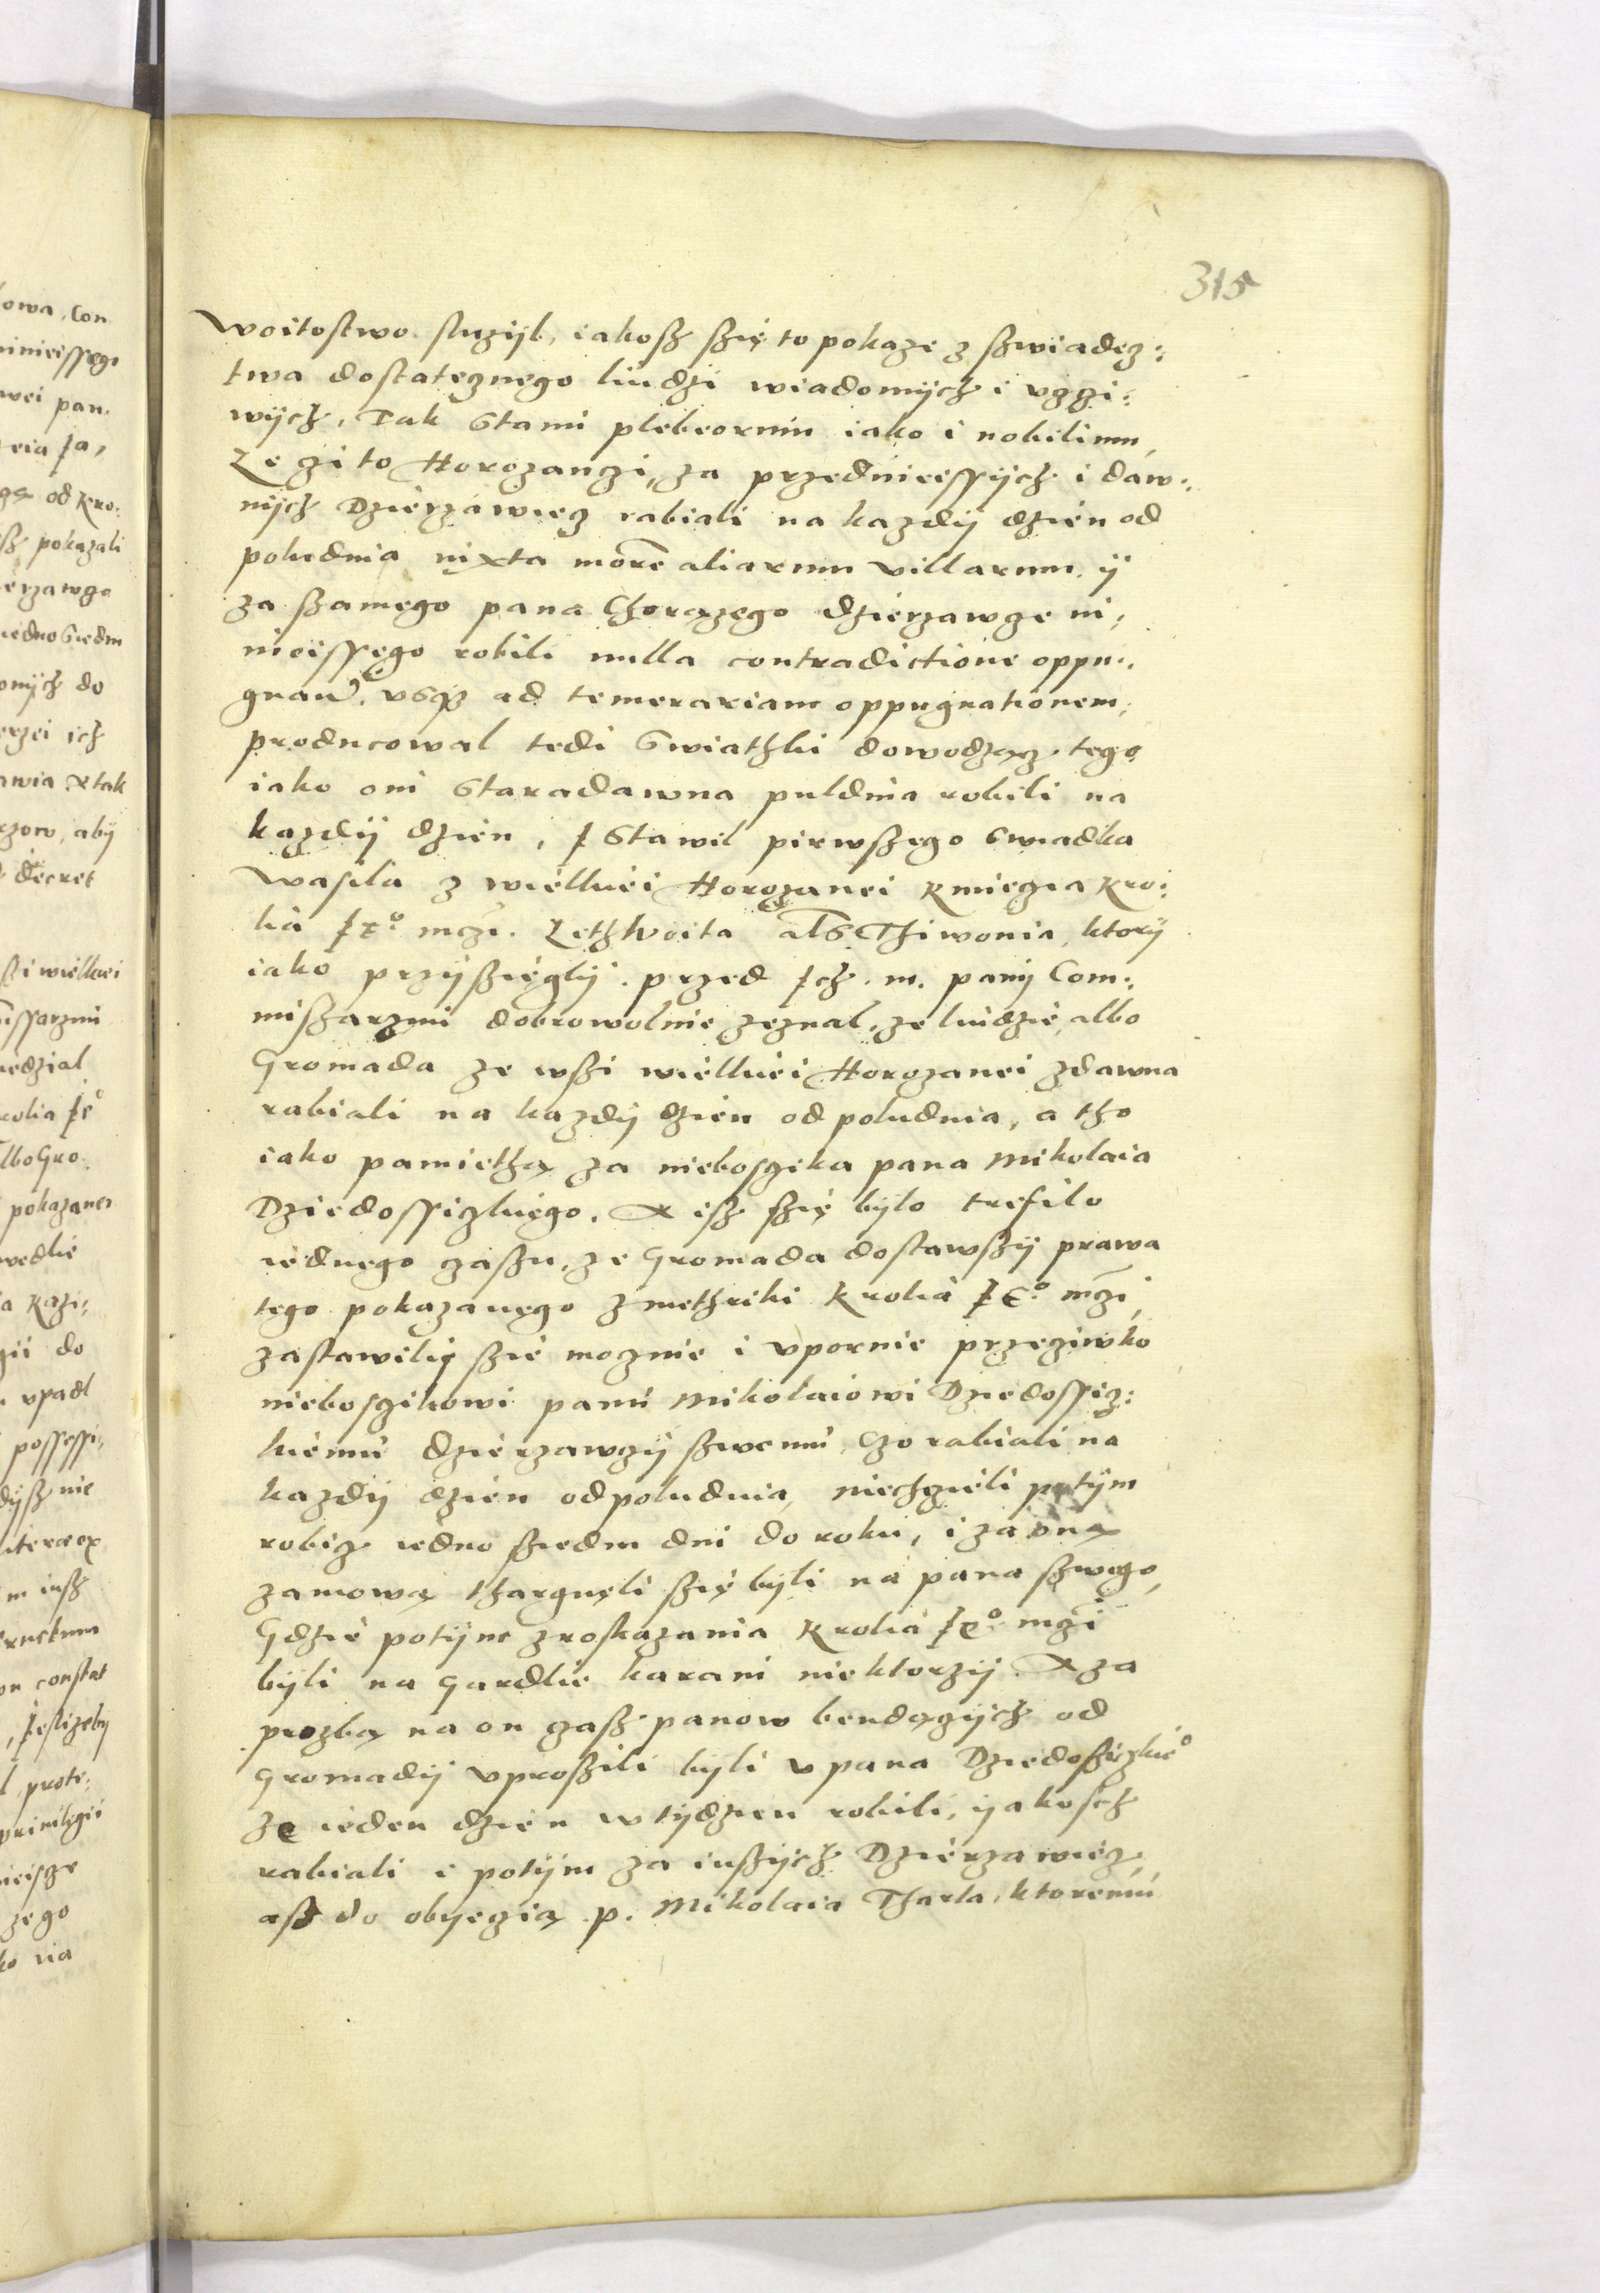 315
woitostwo sluzijl, iakosz szię to pokaze z szwiadecz:
twa dostatecznego liudzi wiadomijch i vczci:
wijch, Tak stami plebeorum iako i nobilium,
Ze czi to Horozanczi, za przednieissijch i daw:
nijch Dzierzawiecz rabiali na kazdij dzien od
poludnia iuxta more aliarum villarum, ij
za szamego pana Chorązego dzierzawce ni,
nieissego robili nulla contradictione oppu:
gnan. vsq3 ad temerariam oppugnationem,
producowal tedi swiathki dowodząc tego
iako oni staradawna puldnia robili na
kazdij dzien, I stawil pirwszego swiadka
Wasila z wielkiei Horozanei kmiecia kro:
lia Ie° mczi. Zethwoita als Thiwonia, ktorij
iako przijszięglij przed Ich. m. panij Com:
miszarzmi dobrowolnie zeznal, ze liudzie, albo
Gromada ze wszi wielkiei Horozanei zdawna
rabiali na kazdij dzien od poludnia, a tho
iako pamiethą za nieboszcika pana Mikolaia
Dziedossiczkięgo. A isz szię bylo trefilo
iednego czaszu, ze Gromada dostawszij prawa
tego pokazanego z methriki krolia Ie° mczi,
zastawilij szie mocznie i vpornie przeciwko
nieboszcikowi panu Mikolaiowi Dziedossicz:
kiemu dzierzawczij szwemu, Czo rabiali na
kazdij dzien od poludnia, niechcieli potijm
robicz iedno szedm dni do roku, i za oną
zamową thargnęli szię bijli na pana szwego,
Gdzie potijm z roskazania krolia Ie° mczi
bijli na Gardlie karani niektorzij. A za
prozbą na on czasz panow bendącijch od
Gromadij vproszili bijli v pana Dziedosziczkie°
ze ieden dzien w tijdzien robili, ijakosch
rabiali i potijm za inszijch Dzierzawiecz,
asz do obyęcia p. Mikolaia Tharla, ktoremu